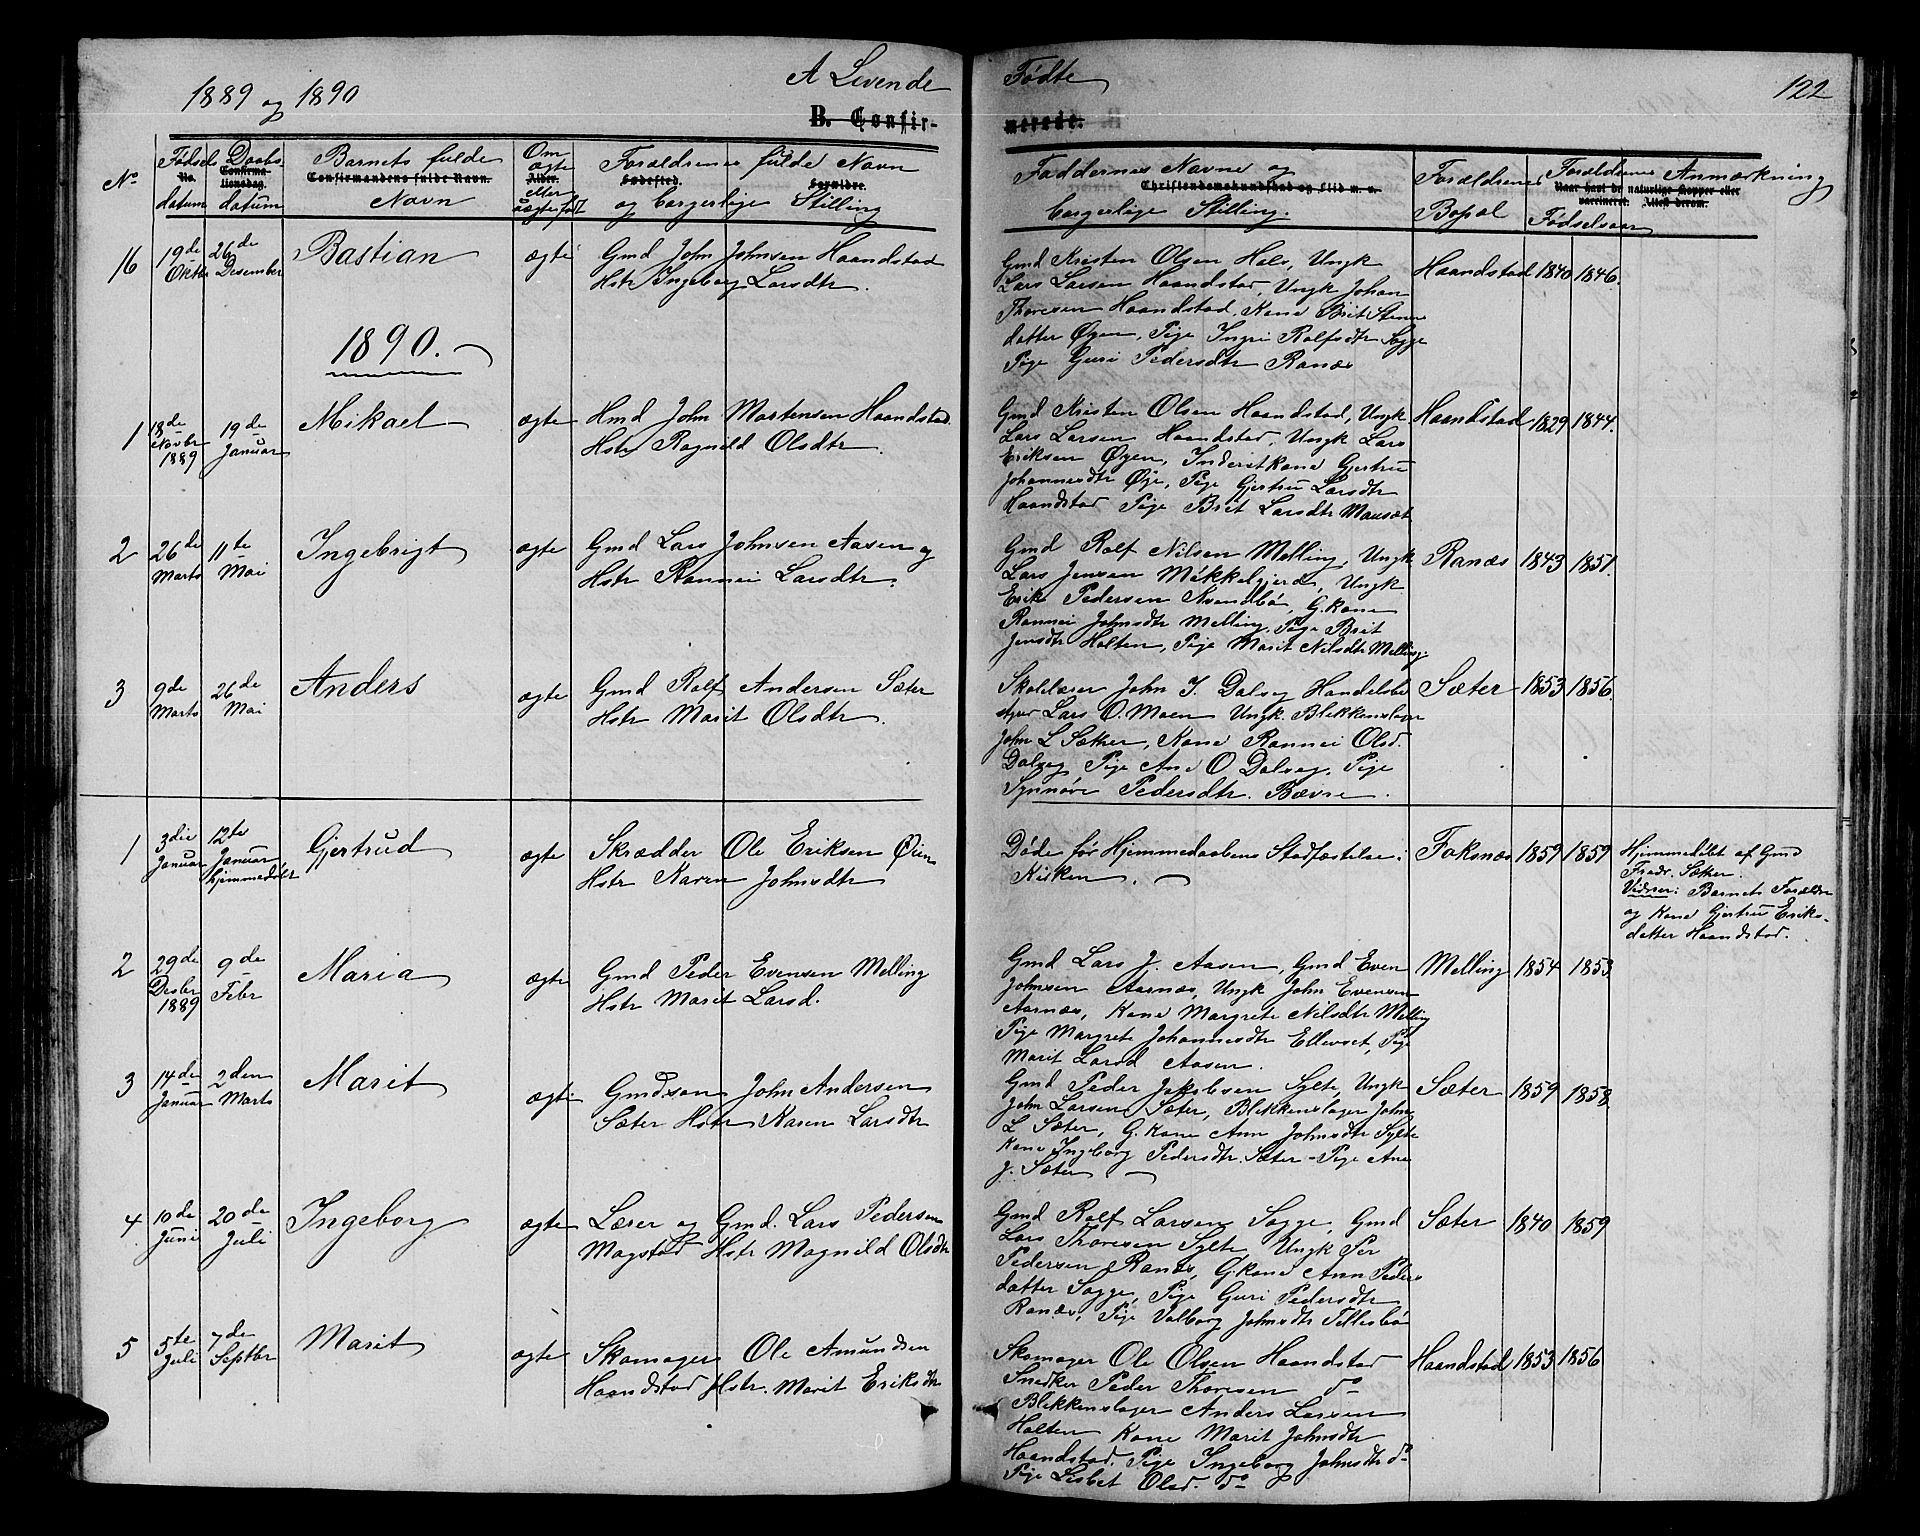 1889 og 1890
A Levende Fødte
122
B. Confirmerede.
No
Fødsels datum
No.
Daabs datum
Confirmationsdag.
Barnets fulde Navn
Confirmandens fulde Navn.
Om ægte eller uægte født
Alder.
Forældrenes fulde Navn og borgerlige Stilling
Fødested.
Foræidre.
Faddernes Navne og borgerlige Stilling.
Christendomskundskab og Flid m. v.
Forældrenes Bopæl
Forældrenes Fødselsaar
Anmærkning
Naar havt de naturlige Kopper eller vaccineret. Attest derom.
16 19de Oktbr 26de Desember Bastian ægte
Gmd John Johnsen Haandstad
Hstr Ingeborg Larsdtr.
Gmd Kristen Olsen Hals, Ungk
Lars Larsen Haandstad, Ungk Johan
Thoresen Haandstad, Kone Brit Steners
datter Øyen, Pige Ingri Rolfsdtr Sogge
Pige Guri Pedersdtr Ranæs
Haandstad 1840 1846.
1890.
1 18de Novbr 1889 19de Januar Mikael ægte
Hmd John Mortensen Haandstad
Hstr Ragnild Olsdtr.
Gmd Kristen Olsen Haandstad, Ungk
Lars Larsen Haandstad, Ungk Lars
Eriksen Øyen, Inderstkone Gjertru
Johannesdtr Øye, Pige Gjertru Larsdtr
Haandstad Pige Brit Larsdtr Mausæt
Haandstad 1829 1844.
2 26de Marts 11te Mai Ingebrigt ægte
Gmd Lars Johnsen Aasen og
Hstr Rannei Larsdtr.
Gmd Rolf Nilsen Melling, Ungk
Lars Jensen Mikkelgjerd, Ungk
Erik Pedersen Kvendbø, G.kone
Rannei Johnsdtr Melling. Pige Brit
Jensdtr Holten, Pige Marit Nilsdtr Melling
Ranæs 1843 1851.
3 9de Marts 26de Mai Anders ægte
Gmd Rolf Andersen Sæter
Hstr Marit Olsdtr.
Skolelærer John I. Dalseg Handelsbe
styrer Lars O. Moen Ungk. Blikkenslager
John L Sæther, Kone Rannei Olsd.
Dalseg Pige Ane O Dalseg. Pige
Synnøve Pedersdtr. Bævre.
Sæter 1853 1856.
1 3die Januar 12te Januar hjemmedøbt Gjertrud ægte
Skrædder Ole Eriksen Øien
Hstr Karen Johnsdtr
Døde før Hjemmedaabens Stadfæstelse i
Kirken.
Foksnæs 1859 1859
Hjemmedøbt af Gmd
Fredr. Sæther.
Vidner: Barnets Forældre
og Kone Gjertru Eriks-
datter Haandstad.
2 29de Desbr 1889 9de Febr Maria ægte
Gmd Peder Evensen Melling
Hstr Marit Larsd.
Gmd Lars J. Aasen, Gmd Even
Johnsen Aarnæs, Ungk John Evensen
Aarnæs, Kone Margrete Nilsdtr Melling
Pige Margrete Johannesdtr Ellevset, Pige
Marit Larsd Aasen.
Melling 1854 1853
3 14de Januar 2den Marts Marit ægte
Gmdssøn John Andersen
Sæter Hstr Karen Larsdtr
Gmd Peder Jakobsen Sylte, Ungk
John Larsen Sæter, Blikkenslager John
L Sæter, G.kone Ann Johnsdtr Sylte
Kone Ingeborg Pedersdtr. Sæter - Pige Ane
J. Sæter
Sæter 1859 1858
4 10de Juni 20de Juli Ingeborg ægte
Lærer og Gmd. Lars Pedersen
Magstad Hstr Magnild Olsdtr
Gmd Rolf Larsen Sogge, Gmd
Lars Thoresen Sylte, Ungk Per
Pedersen Ranæs, G.kone Ann Peders
datter Sogge, Pige Guri Pedersdtr
Ranæs, Pige Valborg Johnsdtr Tellesbø
Sæter 1840 1859
5 5te Juli 7de Septbr Marit ægte
Skomager Ole Amundsen
Haandstad Hstr. Marit Eriksdtr
Skomager Ole Olsen Haandstad
Snedker Peder Thoresen do
Blikkenslager Anders Larsen
Holten Kone Marit Johnsdtr
Haandstad. Pige Ingeborg Johnsdtr do
Pige Lisbet Olsd. do
Haandstad 1853 1856